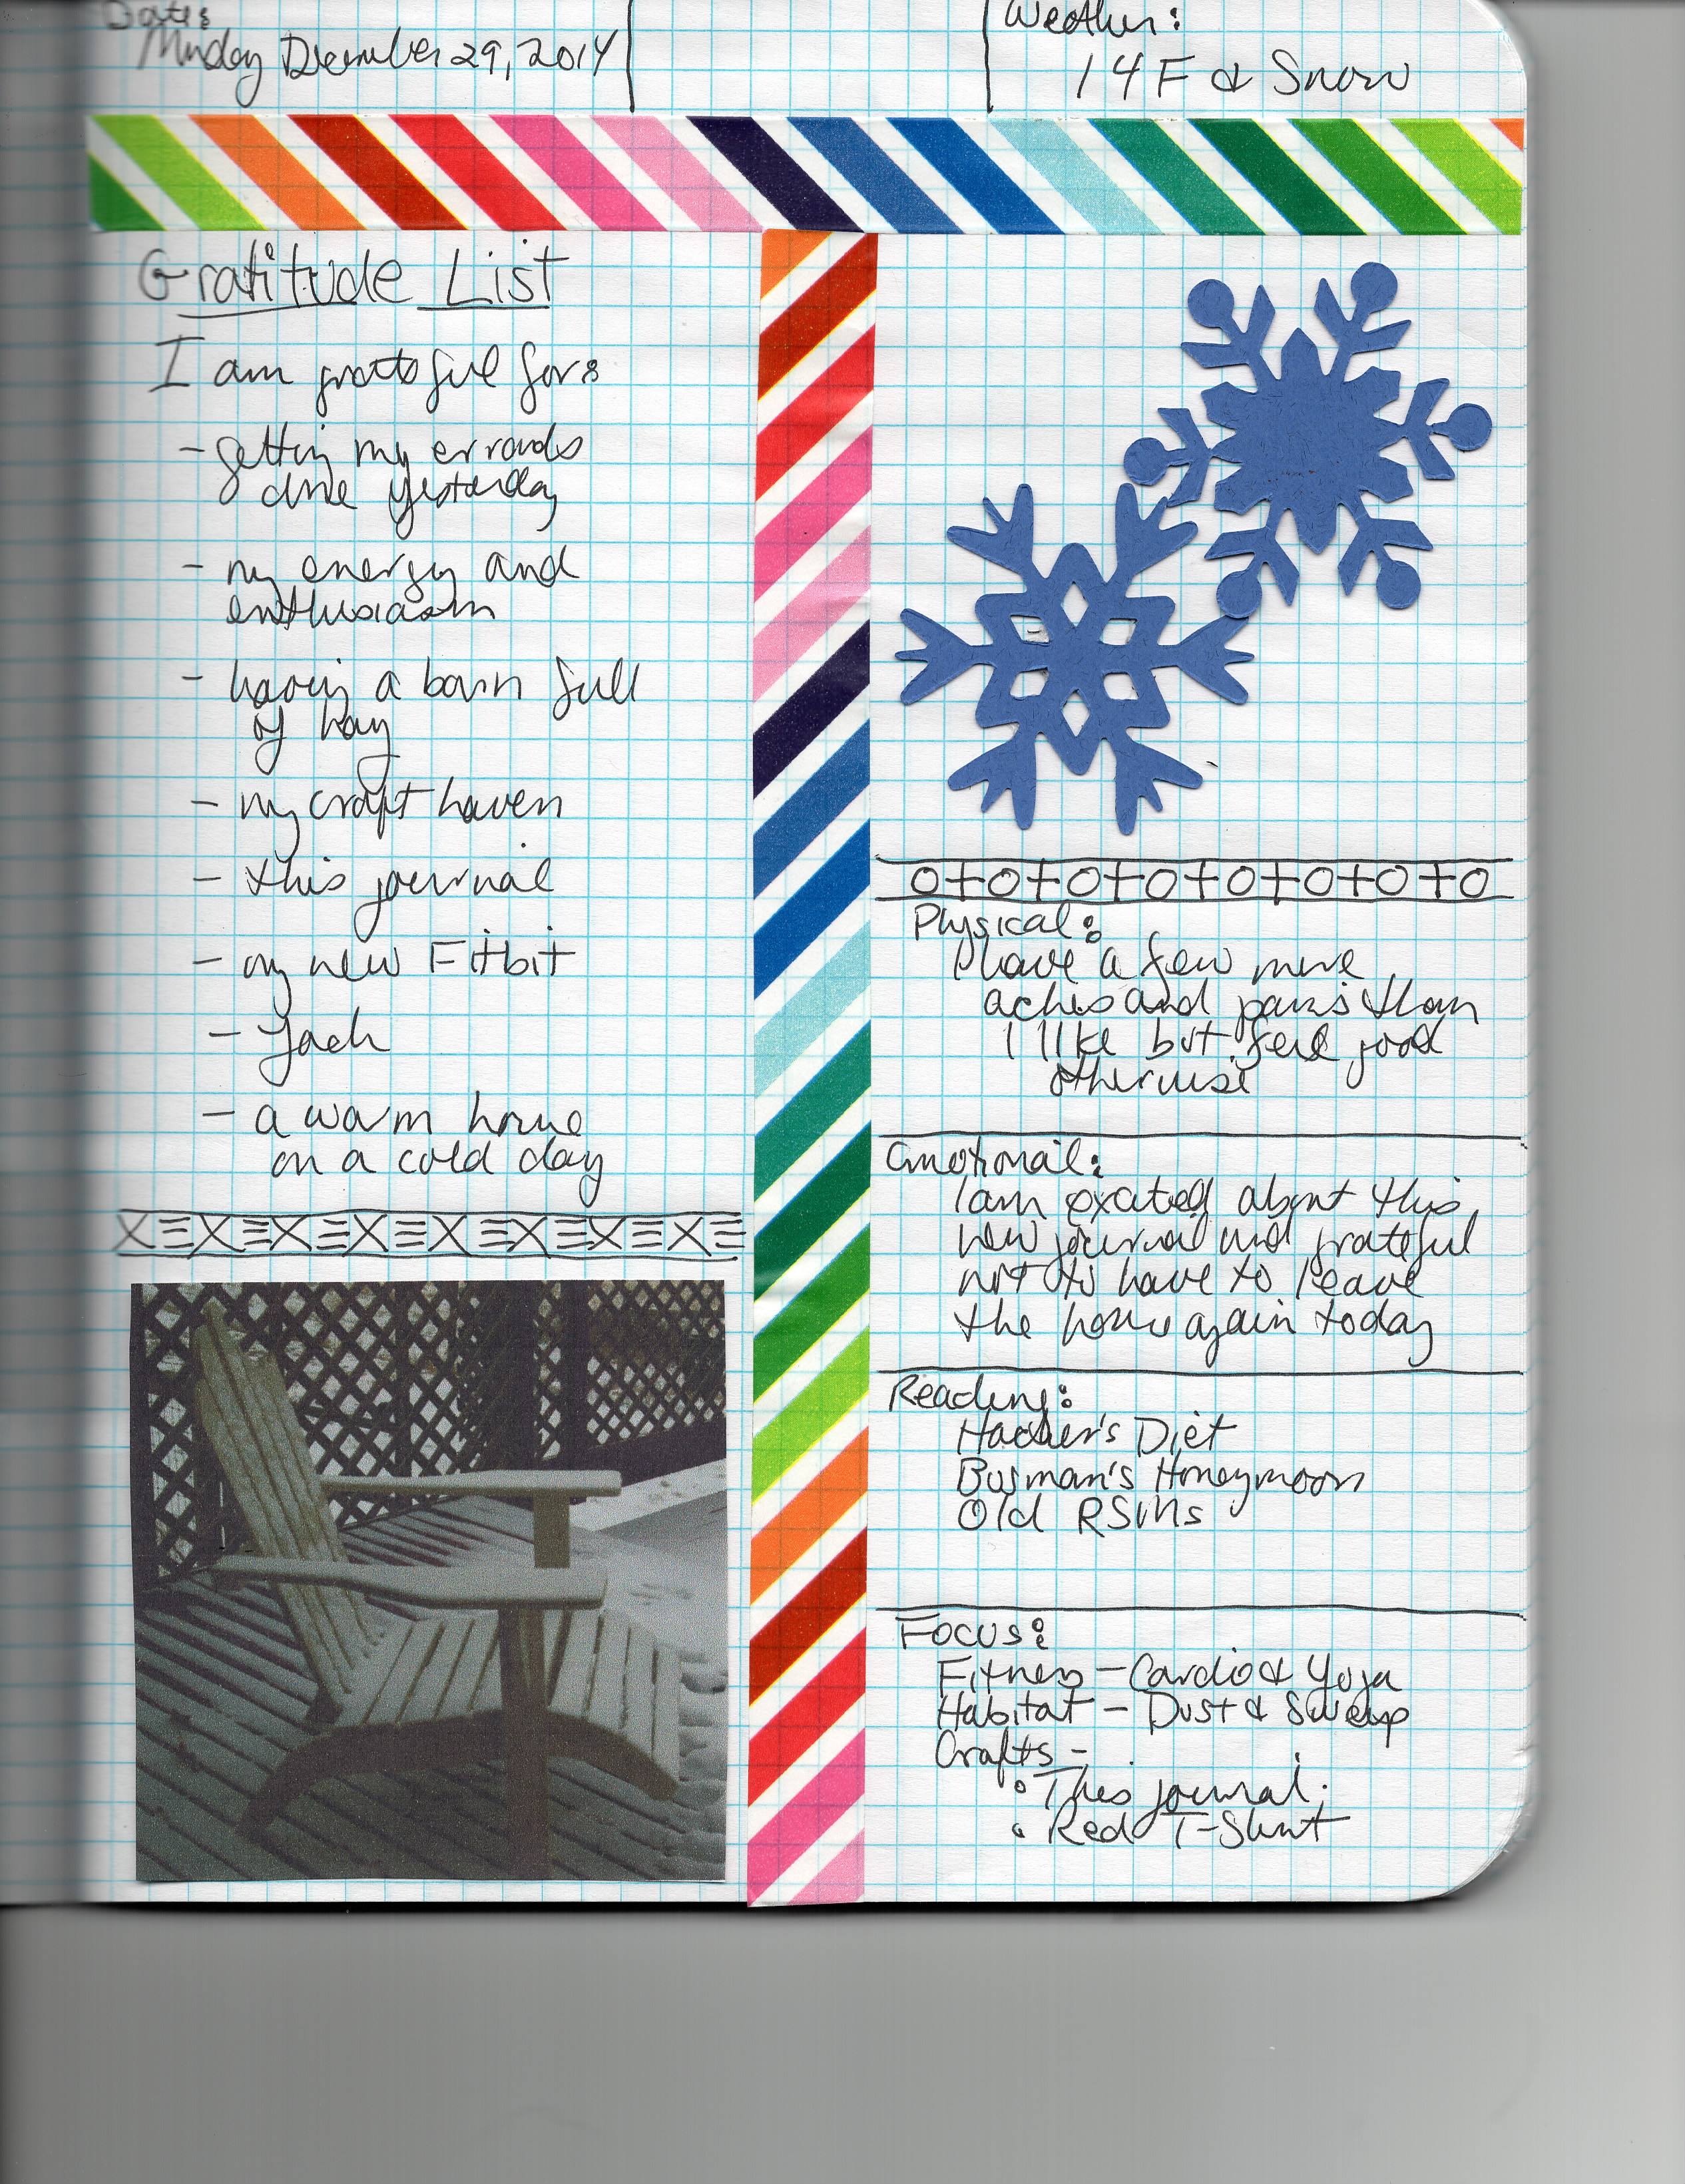 Date:
Monday December 29, 2014
Weather:
14F & Snow
Gratitude List
I am grateful for:
- getting my errands
done yesterday
- my energy and
enthusiasm
- having a barn full
of hay
- my craft haven
- this journal
- my new Fitbit
- Jack
- a warm home
on a cold day
Physical:
I have a few more
aches and pains than
I like but feel good
otherwise
Emotional:
I am excited about this
new journal and grateful
not to have to leave
the house again today
Reading:
Hacker's Diet
Busman's Honeymoon
Old RSMs
Focus:
Fitness - Cardio & Yoga
Habitat - Dust & Sweep
Crafts -
• This journal
• Red T-Shirt